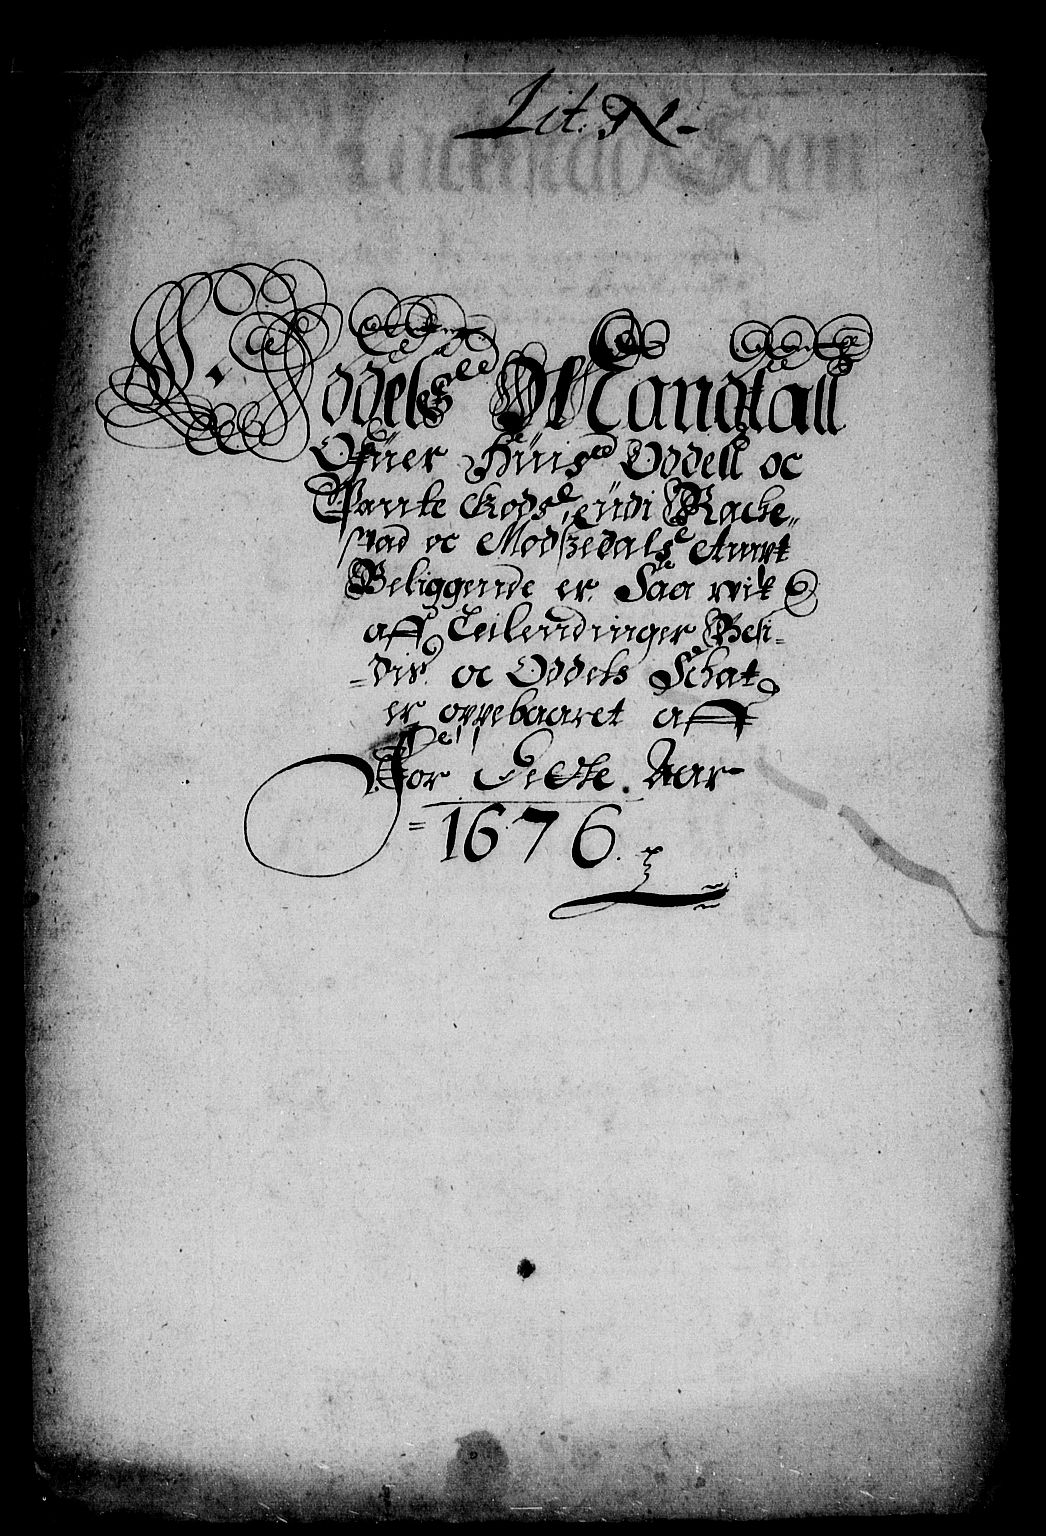 Lit. N.
Oddels Mandtall
Ofuer Huus Oddell oc
Pante Gods, udi Racke„
stad oc Modszedals Ambt
Beliggende er Saa vit
aff Leilendinger Besi=
=dis oc Oddels Schat
er oppebaaret aff
For Eette Aar
=1676.